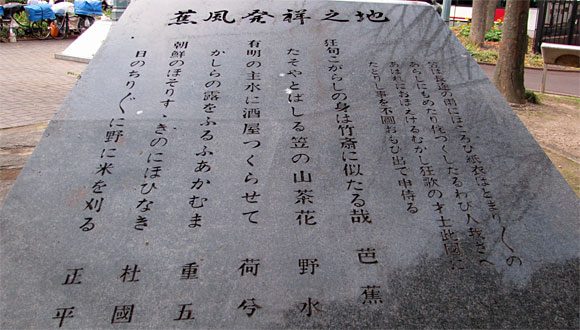 蕉風発祥之地
笠は長途の雨にほころび紙衣はとまり〳〵の
あらしにもめたり侘つくしたるわび人我さへ
あはれにおぼえけるむかし狂歌の才士此國に
たどりし事を不圖おもひ出て申侍る
狂句こがらしの身は竹斎に似たる哉 芭蕉
たそやとばしる笠の山茶花 野水
有明の主水に酒屋つくらせて 荷兮
かしらの露をふるふあかむま 重五
朝鮮のほそりすゝきのにほひなき 杜國
日のちり〴〵に野に米を刈る 正平